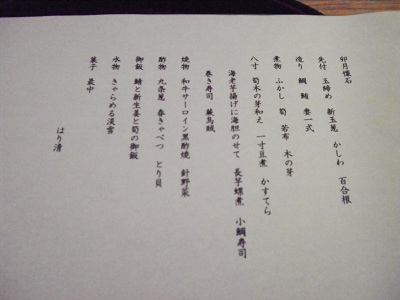 卯月懐石
先付 玉締め 新玉葱 かしわ 百合根
造り 鯛 鮪 妻一式
煮物 ふかし 筍 若布 木の芽
八寸 筍木の芽和え 一寸豆煮 かすてら
海老芋揚げに海胆のせて 長芋蝶煮 小鯛寿司
巻き寿司 蕨烏賊
焼物 和牛サーロイン黒酢焼 針野菜
酢物 九条葱 春きゃべつ とり貝
御飯 鯖と新生姜と筍の御飯
水物 きゃらめる淡雪
菓子 最中
はり清